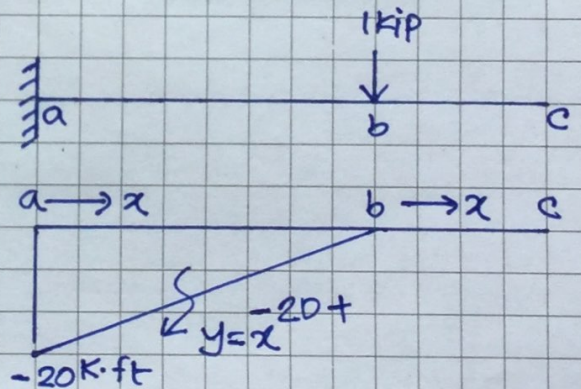 1kip
a b c
a → x b → x c
y = x -20+
-20 K·ft